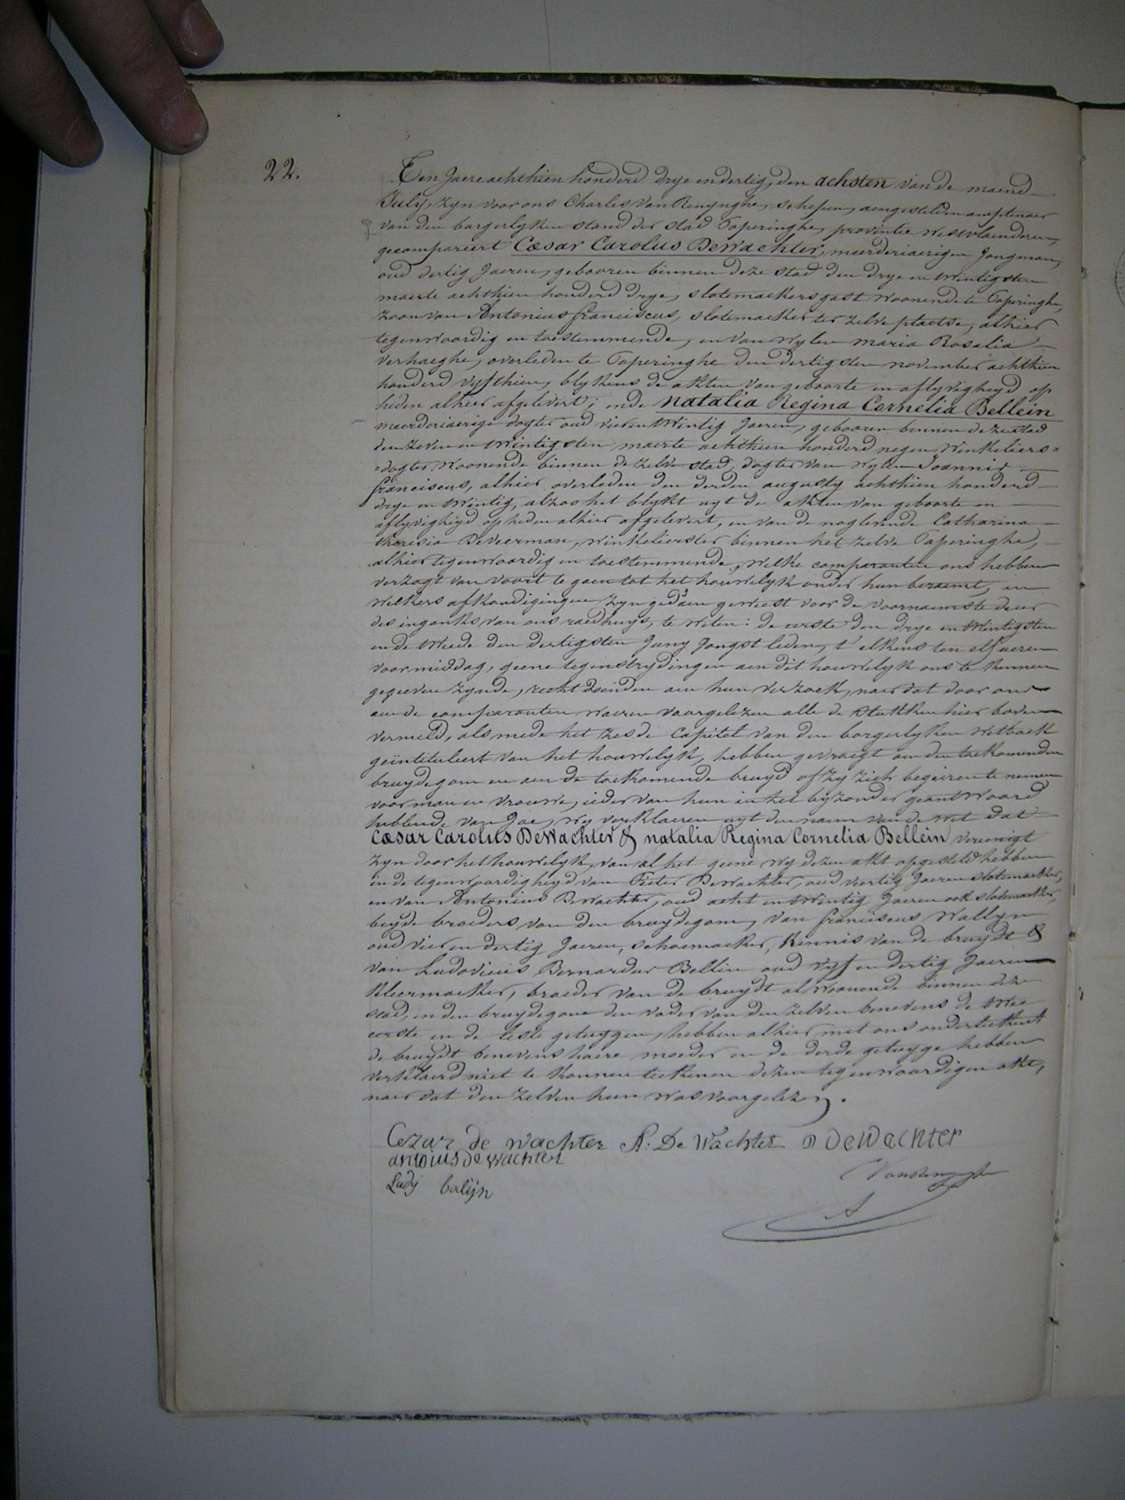 22.
Ten Jaere achthien honderd drye en dertig, den achsten van de maend
July, zyn voor ons Charles Van Renynghe, schepen, aengestelden amptenaer
van den borgerlyken stand der stad Poperinghe, provintie Westvlaenderen,
gecompareert Cæsar Carolus DeWachter, meerderjaerigen Jongman,
oud dertig Jaeren, gebooren binnen deze stad den drye en twintigsten
maerte achthien honderd drye, slotemaekersgast woonende te Poperinghe,
zoon van Antonius franciscus, slotemaeker ter zelve plaetse, alhier
tegenwoordig en toestemmende, en van wylen maria Rosalia
Verhaeghe, overleden te Poperinghe den dertigsten november achthien
honderd vyfthien, blykens de akten van geboorte en aflyvigheyd op
heden alhier afgelevert; ende natalia Regina Cornelia Bellein
meerderjaerige dogter oud vier en twintig Jaeren, gebooren binnen deze stad
den zeven en twintigsten maerte achthien honderd negen, Winkeliers=
=dogter, Woonende binnen de zelve stad, dogter van wylen Joannis
franciscus, alhier overleden den derden augusty achthien honderd
drye en twintig, alzoo het blykt uyt de akten van geboorte en
aflyvigheyd op heden alhier afgelevert, en van de naglevende Catharina
theresia DeVeerman, winkelierster binnen het zelve Poperinghe,
alhier tegenwoordig en toestemmende, welke comparanten ons hebben
verzogt van voort te gaen tot het houwelyk onder hun beraemt, en
welkers afkondigingen zyn gedaen geweest voor de voornaemste deur
des ingangs van ons raedhuys, te weten: de eerste den drye en twintigsten
en de tweede den dertigsten Juny Jongst leden, t'elkens ten elf ueren
voormiddag, geene tegenstrydingen aen dit houwelyk ons te kennen
gegeven zynde, recht doende aen hun verzoek, naer dat door ons
aen de comparanten waeren voorgelezen alle de stukken hier boven
vermeld, als mede het zesde Capitel van den borgerlyken wetboek
geïntituleert van het houwelyk, hebben gevraegt aen den toekomenden
bruydegom en aen de toekomende bruyd of zy zich begeiren te nemen
voor man en vrouwe, ieder van hun in het byzonder geantwoord
hebbende van Jae, wy verklaeren uyt den naem van de wet dat
Cæsar Carolus DeWachter & natalia Regina Cornelia Bellein vereenigt
zyn door het houwelyk, van al het geene wy dezen akt opgesteld hebben
in de tegenwoordigheyd van Pieter DeWachter, oud veertig Jaeren slotemaeker,
en van Antonius DeWachter, oud acht en twintig Jaeren ook slotemaeker,
beyde broeders van den bruydegom, van franciscus Wallyn
oud vier en dertig Jaeren, schoemaeker, Kennis van de bruydt &
van Ludovicus Bernardus Bellin oud vyf en dertig Jaeren
kleermaeker, broeder van de bruydt al woonende binnen deze
stad, en den bruydegom den vader van den zelven benevens de twee
eerste en de leste getuygen, hebben alhier met ons onderteekent
de bruydt benevens haere moeder en de derde getuyge hebben
verklaerd niet te konnen teekenen dezen tegenwoordigen akt,
naer dat den zelven hun was voorgelezen.
Cezar de wachter A. De Wachter P DeWachter
antonius de wachter
Ludy belijn